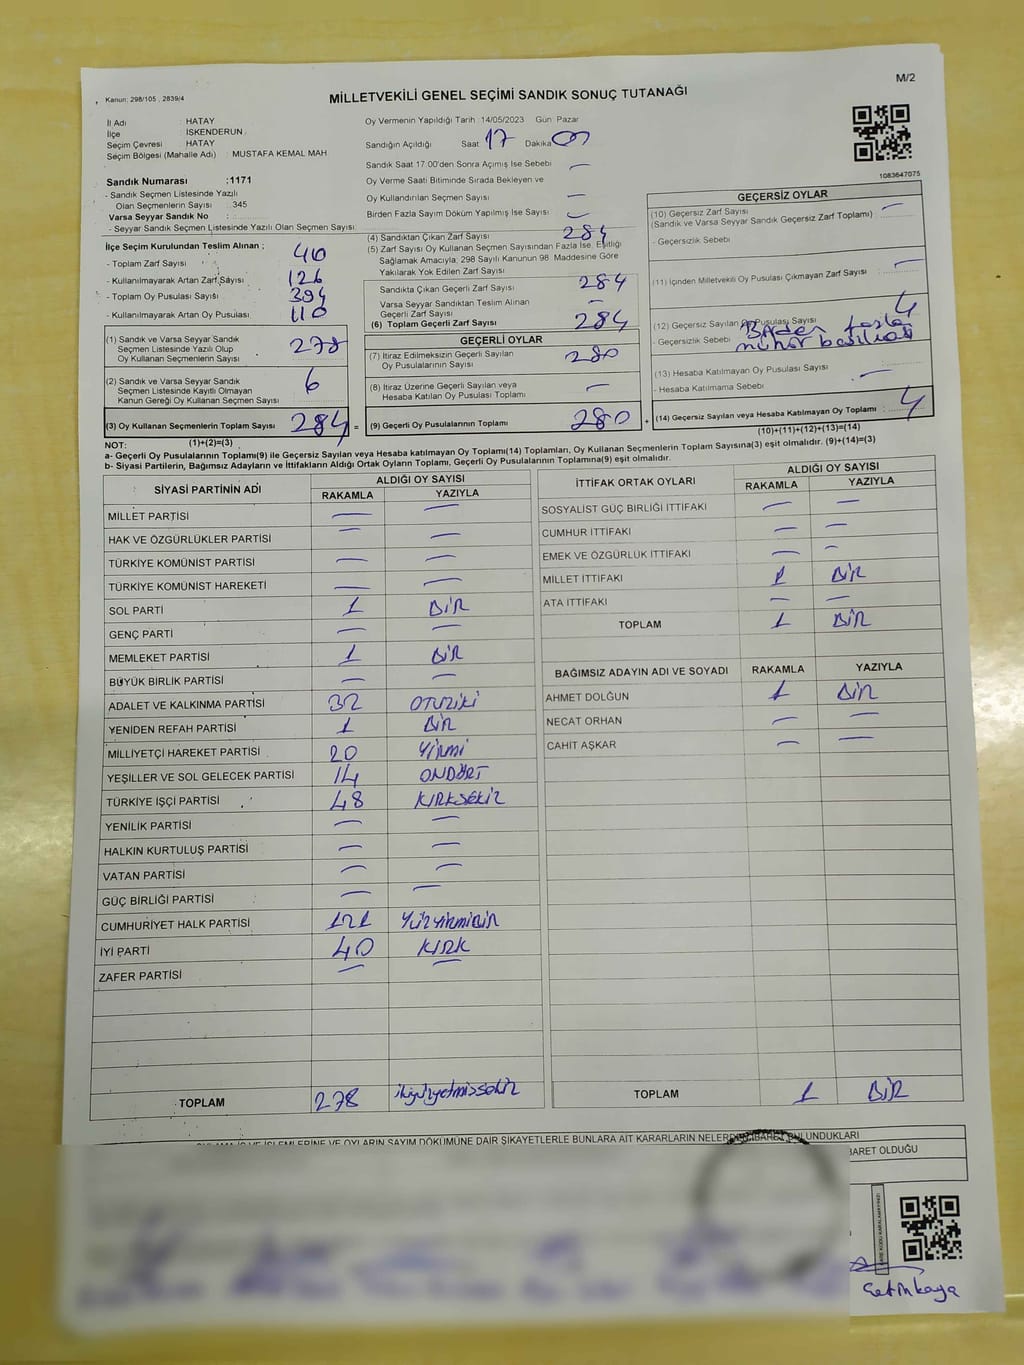 M/2
Kanun: 298/105 , 2839/4
MİLLETVEKİLİ GENEL SEÇİMİ SANDIK SONUÇ TUTANAĞI
İl Adı : HATAY
İlçe : İSKENDERUN
Seçim Çevresi : HATAY
Seçim Bölgesi (Mahalle Adı) : MUSTAFA KEMAL MAH
Sandık Numarası :1171
- Sandık Seçmen Listesinde Yazılı
Olan Seçmenlerin Sayısı : 345
Varsa Seyyar Sandık No :
- Seyyar Sandık Seçmen Listesinde Yazılı Olan Seçmen Sayısı:
Oy Vermenin Yapıldığı Tarih :14/05/2023 Gün: Pazar
Sandığın Açıldığı Saat 17 Dakika 00
Sandık Saat 17:00'den Sonra Açımış İse Sebebi —
Oy Verme Saati Bitiminde Sırada Bekleyen ve
Oy Kullandırılan Seçmen Sayısı —
Birden Fazla Sayım Döküm Yapılmış İse Sayısı —
1083647075
İlçe Seçim Kurulundan Teslim Alınan ;
- Toplam Zarf Sayısı
- Kullanılmayarak Artan Zarf Sayısı : 126
- Toplam Oy Pusulası Sayısı 394
- Kullanılmayarak Artan Oy Pusulası : 110
(1) Sandık ve Varsa Seyyar Sandık
Seçmen Listesinde Yazılı Olup
Oy Kullanan Seçmenlerin Sayısı 278
(2) Sandık ve Varsa Seyyar Sandık
Seçmen Listesinde Kayıtlı Olmayan
Kanun Gereği Oy Kullanan Seçmen Sayısı 6
(3) Oy Kullanan Seçmenlerin Toplam Sayısı 284 =
(4) Sandıktan Çıkan Zarf Sayısı 284
(5) Zarf Sayısı Oy Kullanan Seçmen Sayısından Fazla İse, Eşitliği
Sağlamak Amacıyla, 298 Sayılı Kanunun 98. Maddesine Göre
Yakılarak Yok Edilen Zarf Sayısı
Sandıkta Çıkan Geçerli Zarf Sayısı 284
Varsa Seyyar Sandıktan Teslim Alınan
Geçerli Zarf Sayısı —
(6) Toplam Geçerli Zarf Sayısı 284
GEÇERLİ OYLAR
(7) İtiraz Edilmeksizin Geçerli Sayılan
Oy Pusulalarının Sayısı 280
(8) İtiraz Üzerine Geçerli Sayılan veya
Hesaba Katılan Oy Pusulası Toplamı —
(9) Geçerli Oy Pusulalarının Toplamı 280 +
GEÇERSİZ OYLAR
(10) Geçersiz Zarf Sayısı —
(Sandık ve Varsa Seyyar Sandık Geçersiz Zarf Toplamı)
- Geçersizlik Sebebi
(11) İçinden Milletvekili Oy Pusulası Çıkmayan Zarf Sayısı —
(12) Geçersiz Sayılan Oy Pusulası Sayısı 4
- Geçersizlik Sebebi Birden fazla
mühür basılması
(13) Hesaba Katılmayan Oy Pusulası Sayısı —
- Hesaba Katılmama Sebebi
(14) Geçersiz Sayılan veya Hesaba Katılmayan Oy Toplamı : 4
(10)+(11)+(12)+(13)=(14)
NOT: (1)+(2)=(3)
a- Geçerli Oy Pusulalarının Toplamı(9) ile Geçersiz Sayılan veya Hesaba katılmayan Oy Toplamı(14) Toplamları, Oy Kullanan Seçmenlerin Toplam Sayısına(3) eşit olmalıdır. (9)+(14)=(3)
b- Siyasi Partilerin, Bağımsız Adayların ve İttifakların Aldığı Ortak Oyların Toplamı, Geçerli Oy Pusulalarının Toplamına(9) eşit olmalıdır.
SİYASİ PARTİNİN ADI ALDIĞI OY SAYISI
RAKAMLA YAZIYLA
MİLLET PARTİSİ — —
HAK VE ÖZGÜRLÜKLER PARTİSİ — —
TÜRKİYE KOMÜNİST PARTİSİ — —
TÜRKİYE KOMÜNİST HAREKETİ — —
SOL PARTİ 1 BİR
GENÇ PARTİ — —
MEMLEKET PARTİSİ 1 BİR
BÜYÜK BİRLİK PARTİSİ — —
ADALET VE KALKINMA PARTİSİ 32 OTUZİKİ
YENİDEN REFAH PARTİSİ 1 BİR
MİLLİYETÇİ HAREKET PARTİSİ 20 YİRMİ
YEŞİLLER VE SOL GELECEK PARTİSİ 14 ONDÖRT
TÜRKİYE İŞÇİ PARTİSİ 48 KIRKSEKİZ
YENİLİK PARTİSİ — —
HALKIN KURTULUŞ PARTİSİ — —
VATAN PARTİSİ — —
GÜÇ BİRLİĞİ PARTİSİ — —
CUMHURİYET HALK PARTİSİ 121 YÜZYİRMİBİR
İYİ PARTİ 40 KIRK
ZAFER PARTİSİ — —
TOPLAM 278 ikiyüzyetmişsekiz
İTTİFAK ORTAK OYLARI ALDIĞI OY SAYISI
RAKAMLA YAZIYLA
SOSYALİST GÜÇ BİRLİĞİ İTTİFAKI — —
CUMHUR İTTİFAKI — —
EMEK VE ÖZGÜRLÜK İTTİFAKI — —
MİLLET İTTİFAKI 1 BİR
ATA İTTİFAKI — —
TOPLAM 1 BİR
BAĞIMSIZ ADAYIN ADI VE SOYADI RAKAMLA YAZIYLA
AHMET DOLĞUN 1 BİR
NECAT ORHAN — —
CAHİT AŞKAR — —
TOPLAM 1 BİR
İŞLEMLERİNE VE OYLARIN SAYIM DÖKÜMÜNE DAİR ŞİKAYETLERLE BUNLARA AİT KARARLARIN NELERDEN İBARET BULUNDUKLARI
BARET OLDUĞU
Çetinkaya